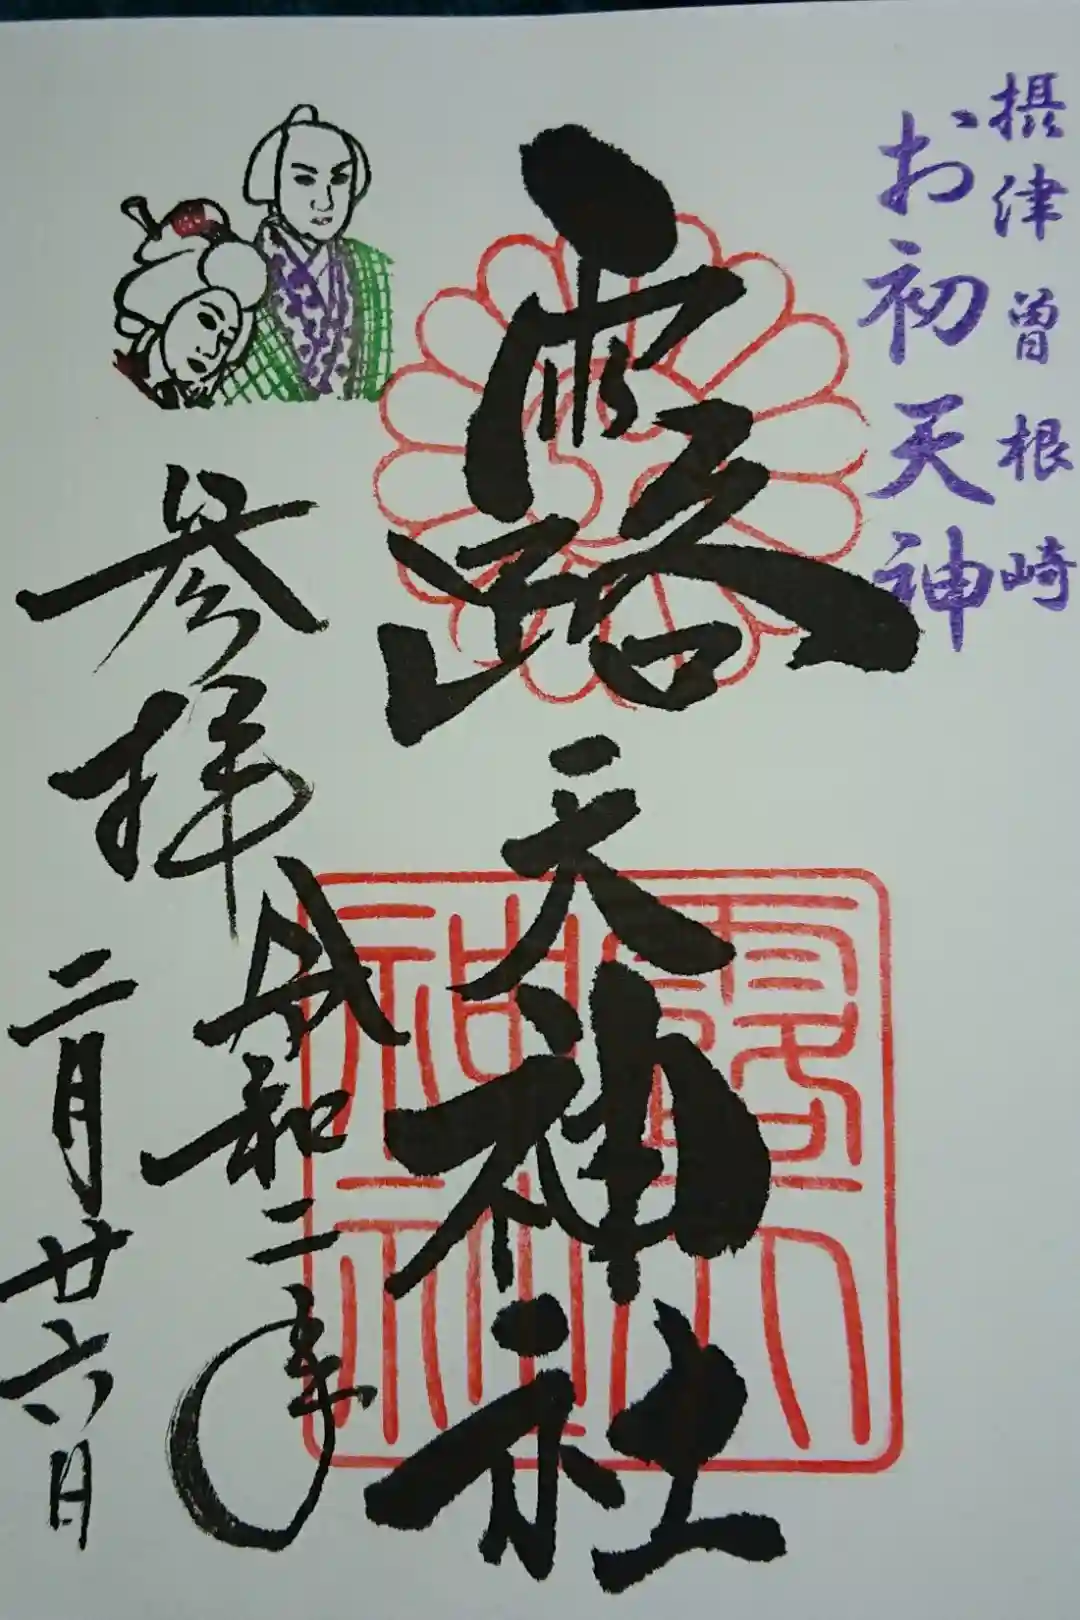 摂津曽根崎
お初天神
露天神社
露天
神社
参拝
令和二年
二月廿六日